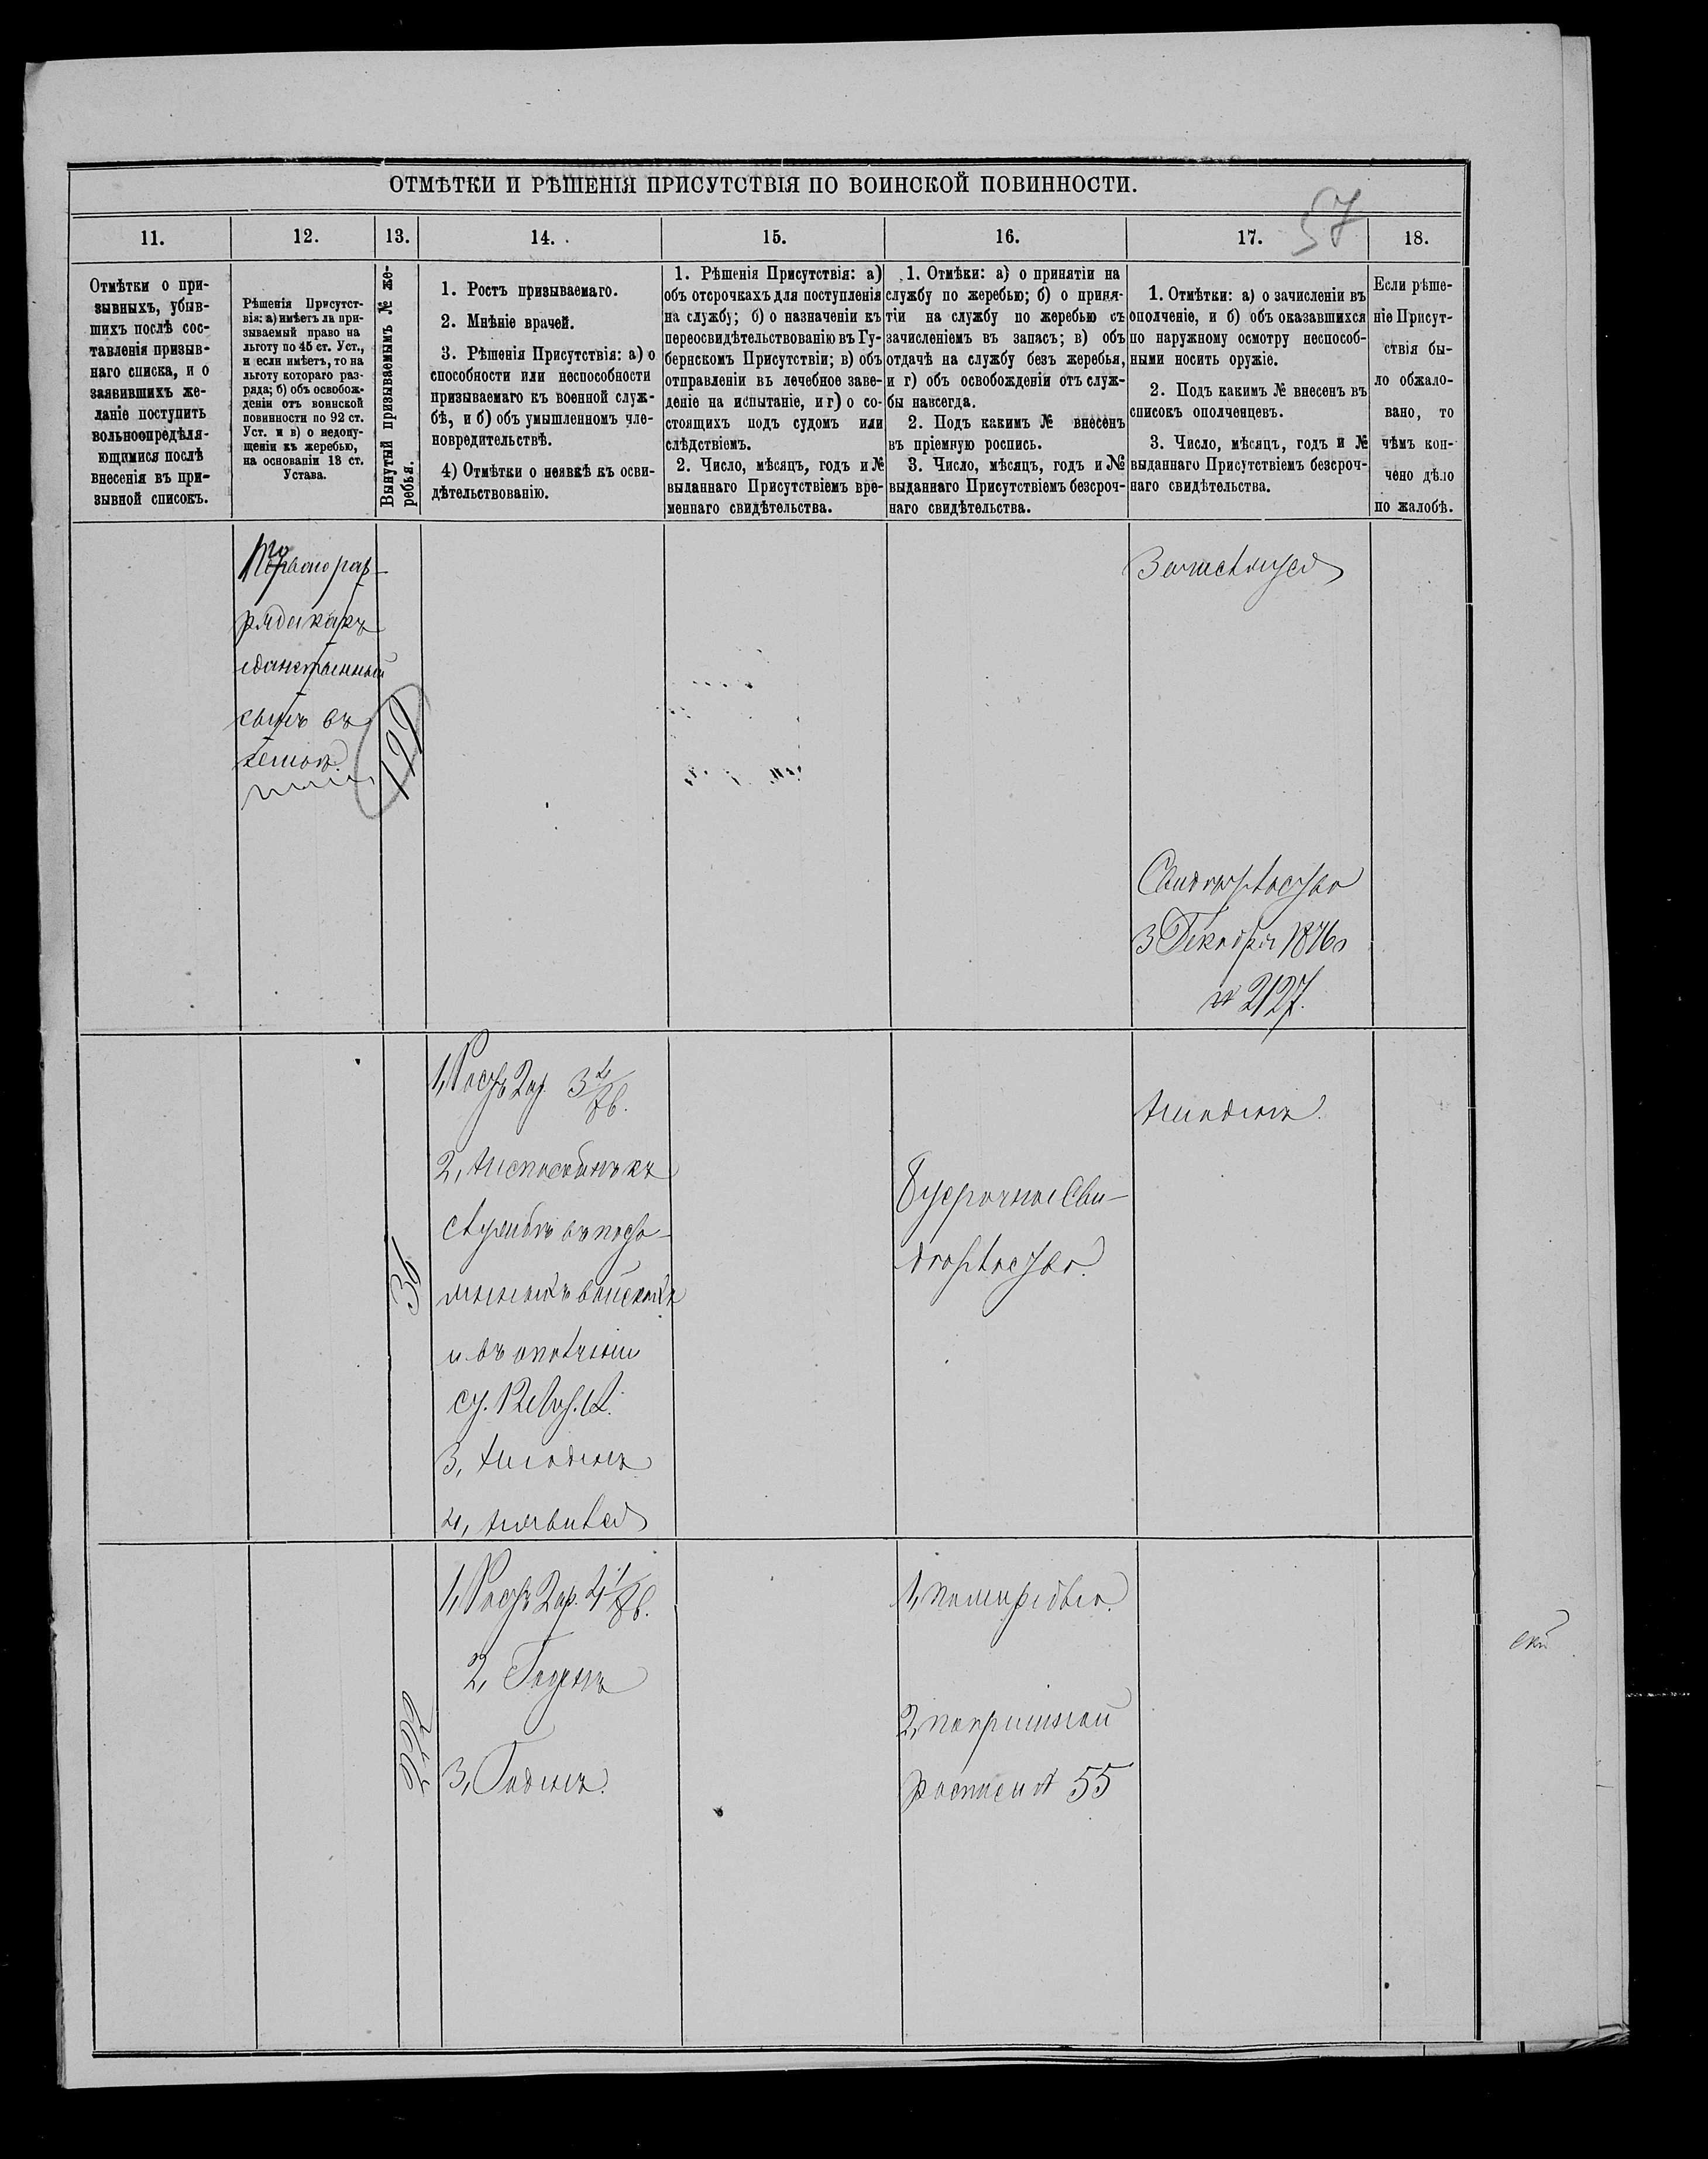 ОТМѢТКИ И РѢШЕНІЯ ПРИСУТСТВІЯ ПО ВОИНСКОЙ ПОВИННОСТИ.
57
11.
12.
13.
14.
15.
16.
17.
18.
Отмѣтки о при-
зывныхъ, убыв-
шихъ послѣ сос-
тавленія призыв-
наго списка, и о
заявившихъ же-
ланіе поступить
вольноопредѣля-
ющимися послѣ
внесенія въ при-
зывной списокъ.
Рѣшенія Присутст-
вія: а) имѣетъ ли при-
зываемый право на
льготу по 45 ст. Уст.,
и если имѣетъ, то на
льготу котораго раз-
ряда; б) объ освобож-
деніи отъ воинской
повинности по 92 ст.
Уст. и в) о недопу-
щеніи къ жеребью,
на основаніи 13 ст.
Устава.
Вынутый призываемымъ № же-
ребья.
1. Ростъ призываемаго.
2. Мнѣніе врачей.
3. Рѣшенія Присутствія: а) о
способности или неспособности
призываемаго къ военной служ-
бѣ, и б) объ умышленномъ чле-
новредительствѣ.
4) Отмѣтки о неявкѣ къ осви-
дѣтельствованію.
1. Рѣшенія Присутствія: а)
объ отсрочкахъ для поступленія
на службу; б) о назначеніи къ
переосвидѣтельствованію въ Гу-
бернскомъ Присутствіи; в) объ
отправленіи въ лечебное заве-
деніе на испытаніе, и г) о со-
стоящихъ подъ судомъ или
слѣдствіемъ.
2. Число, мѣсяцъ, годъ и №
выданнаго Присутствіемъ вре-
меннаго свидѣтельства.
1. Отмѣки: а) о принятіи на
службу по жеребью; б) о приня-
тіи на службу по жеребью съ
зачисленіемъ въ запасъ; в) объ
отдачѣ на службу безъ жеребья,
и г) объ освобожденіи отъ служ-
бы навсегда.
2. Подъ какимъ № внесенъ
въ пріемную роспись.
3. Число, мѣсяцъ, годъ и №
выданнаго Присутствіемъ безсроч-
наго свидѣтельства.
1. Отмѣтки: а) о зачисленіи въ
ополченіе, и б) объ оказавшихся
по наружному осмотру неспособ-
ными носить оружіе.
2. Подъ какимъ № внесенъ въ
списокъ ополченцевъ.
3. Число, мѣсяцъ, годъ и №
выданнаго Присутствіемъ безсроч-
наго свидѣтельства.
Если рѣше-
ніе Присут-
ствія бы-
ло обжало-
вано, то
чѣмъ кон-
чено дѣло
по жалобѣ.
Перваго раз-
ряда какъ
единственный
сынъ въ
семьѣ
Свидѣтельство
3 Декабря 1876
№ 2127.
36
1, Ростъ 2 ар. 3
2, Неспособенъ къ
службѣ въ посто-
янныхъ войскахъ
и въ ополченіи
3, Негоденъ
4, Неявился
Безсрочное Сви-
дѣтельство.
Негоденъ.
1, Ростъ 2 ар. 4
2, Годенъ
3, Годенъ.
1, По жеребью.
2, по пріемной
росписи № 55